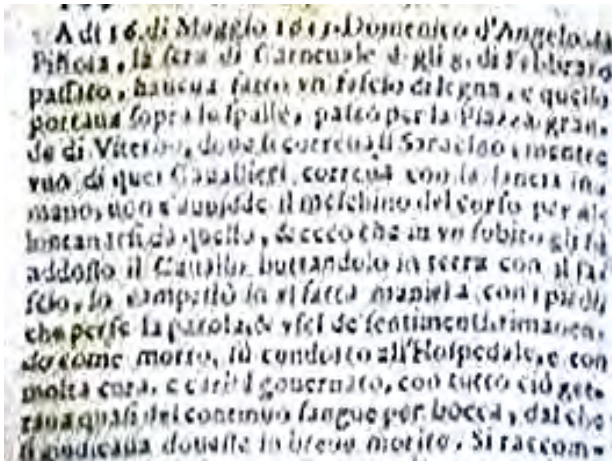 A di 16. di Maggio 1615. Domenico d'Angelo da
Piñota, la sera di Carneuale d gli 8. di Febbraro
passato, haueua fatto vn fascio di legna, e quello
portaua sopra le spalle, passò per la Piazza gran-
de di Viterbo, doue si correua il Saracino, mentre
vno di quei Cauallieri correua con la lancia in
mano, non s'auuidde il meschino del corso per al-
lontanarsi da quello, & ecco che in vn subito gli fù
addosso il Cauallo, buttandolo in terra con il fa-
scio, lo zampettò in sì fatta maniera con i piedi,
che perse la parola, & vscì de sentimenti, rimanen-
do come morto, fù condotto all'Hospedale, e con
molta cura, e carità gouernato, con tutto ciò get-
taua quasi del continuo sangue per bocca, dal che
si giudicaua douesse in breue morire. Si raccom-